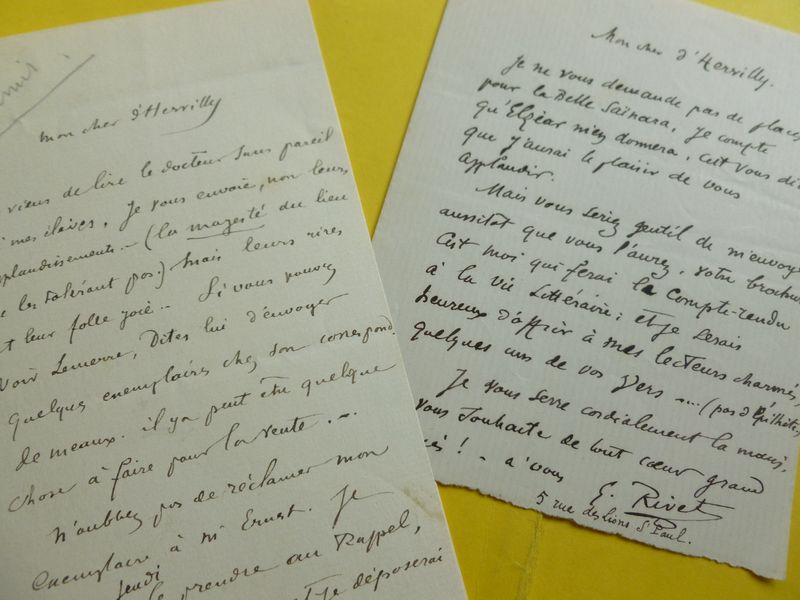 mon cher d'Hervilly
viens de lire le docteur sans pareil
mes élèves. Je vous envoie, non leurs
applaudissements — (la majesté du lieu
les tolérant pas.) mais leurs rires
et leur folle joie... Si vous pouvez
voir Lemerre, Dites lui d'envoyer
quelques exemplaires chez son correspond.
de meaux. il y a peut être quelque
chose à faire pour la vente...
N'oubliez pas de réclamer mon
exemplaire à Mr Ernest. Je
jeudi
prendre au Rappel,
et je déposerai
Mon cher d'Hervilly.
Je ne vous demande pas de places
pour la Belle Saïnara, Je compte
qu'Elzéar m'en donnera, c'est vous di
que j'aurai le plaisir de vous
applaudir.
Mais vous seriez gentil de m'envoye
aussitot que vous l'aurez, votre brochur
C'est moi qui ferai le compte-rendu
à la vie Littéraire; et je serais
heureux d'offrir à mes lecteurs charmés,
quelques uns de vos vers .... (pas d'Epithète,
Je vous serre cordialement la main,
vous souhaite de tout cœur grand
cès! - à vous
E. Rivet
5 rue des Lions St Paul.